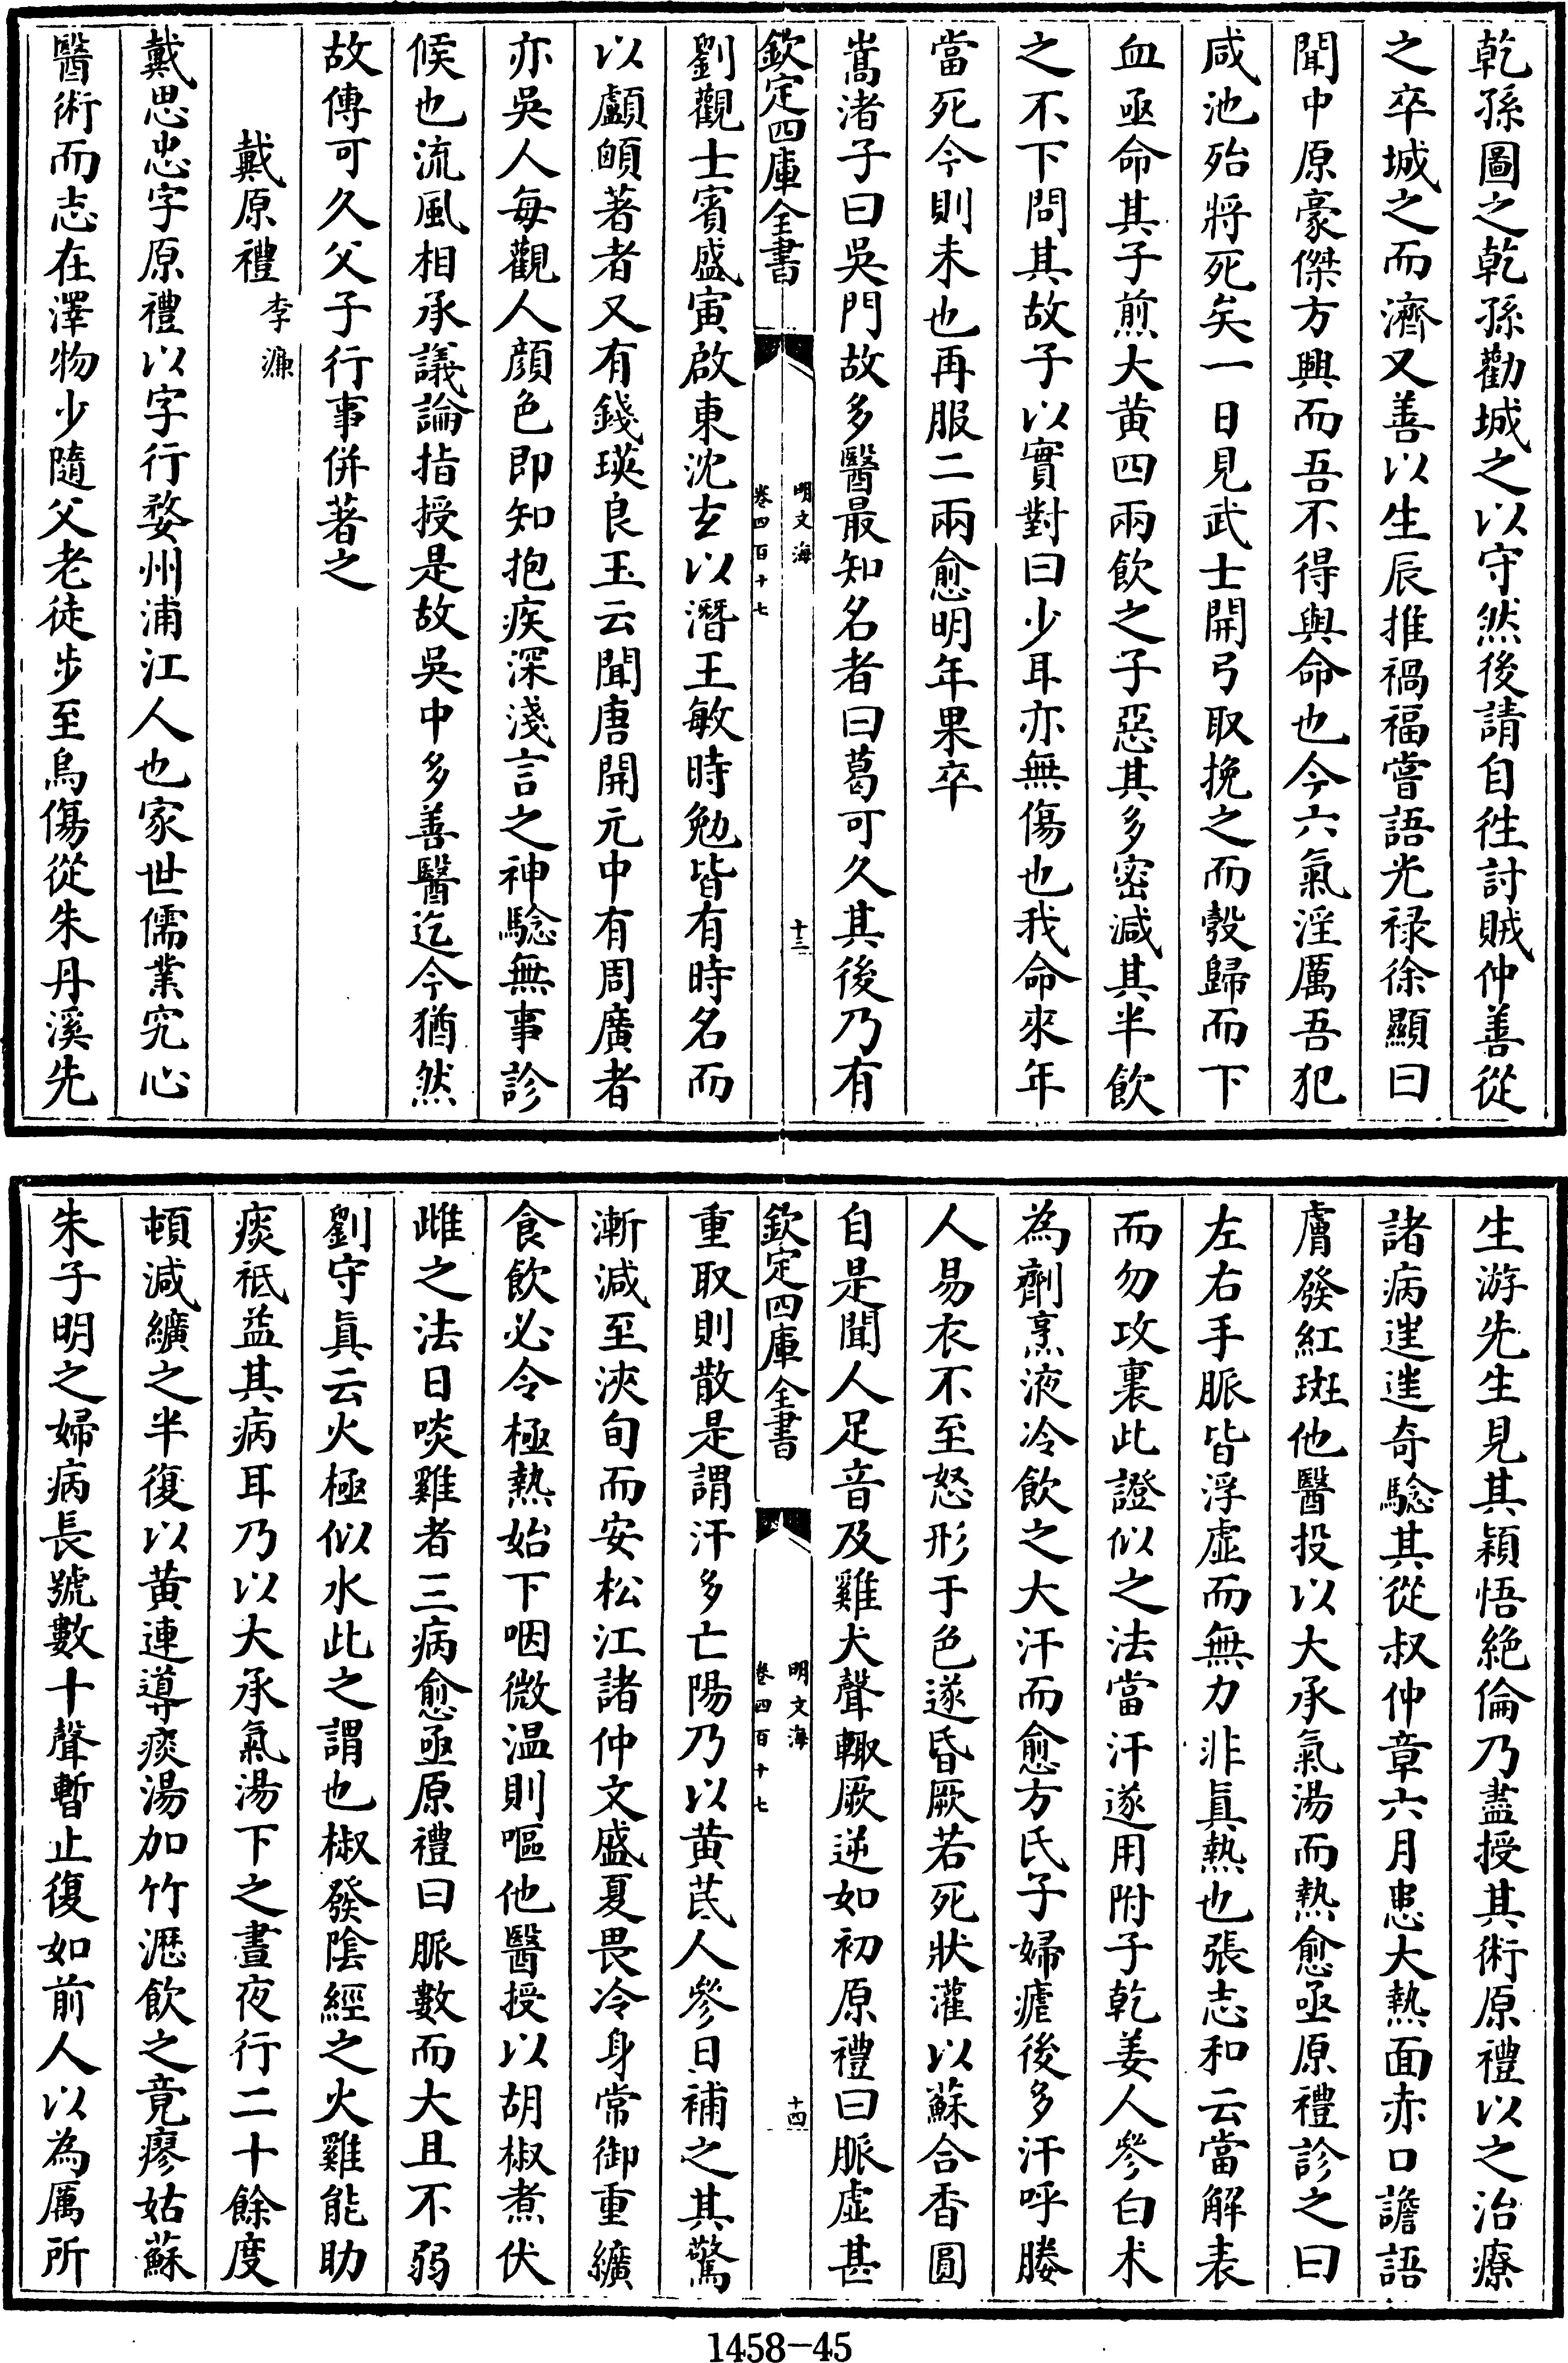 乾孫圖之乾孫勸城之以守然後請自徃討賊仲善從
之卒城之而濟又善以生辰推禍福嘗語光禄徐顯曰
聞中原豪傑方興而吾不得與命也今六氣淫厲吾犯
咸池殆將死矣一日見武士開弓取挽之而彀歸而下
血亟命其子煎大黄四兩飲之子惡其多密減其半飲
之不下問其故子以實對曰少耳亦無傷也我命來年
當死今則未也再服二兩愈明年果卒
嵩渚子曰吳門故多醫最知名者曰葛可久其後乃有
欽定四庫全書
明文海
卷四百十七
十三
劉觀士賓盛寅啟東沈玄以潛王敏時勉皆有時名而
以顱䪿著者又有錢瑛良玉云聞唐開元中有周廣者
亦吳人每觀人顔色即知抱疾深淺言之神騐無事診
候也流風相承議論指授是故吳中多善醫迄今猶然
故傳可久父子行事併著之
戴原禮李濂
戴思忠字原禮以字行婺州浦江人也家世儒業究心
醫術而志在澤物少隨父老徒步至烏傷從朱丹溪先
生游先生見其穎悟絶倫乃盡授其術原禮以之治療
諸病迣迣奇騐其從叔仲章六月患大熱面赤口譫語
膚發紅斑他醫投以大承氣湯而熱愈亟原禮診之曰
左右手脈皆浮虛而無力非真熱也張志和云當解表
而勿攻裏此證似之法當汗遂用附子乾姜人參白术
為劑烹液冷飲之大汗而愈方氏子婦瘧後多汗呼媵
人易衣不至怒形于色遂昏厥若死狀灌以蘇合香圓
自是聞人足音及雞犬聲輙厥逆如初原禮曰脈虛甚
欽定四庫全書
明文海
卷四百十七
十四
重取則散是謂汗多亡陽乃以黄芪人參日補之其驚
漸減至浹旬而安松江諸仲文盛夏畏冷身常御重纊
食飲必令極熱始下咽微温則嘔他醫授以胡椒煮伏
雌之法日啖雞者三病愈亟原禮曰脈數而大且不弱
劉守真云火極似水此之謂也椒發隂經之火雞能助
痰祗益其病耳乃以大承氣湯下之晝夜行二十餘度
頓減纊之半復以黄連導痰湯加竹瀝飲之竟瘳姑蘇
朱子明之婦病長號數十聲暫止復如前人以為厲所
1458-45